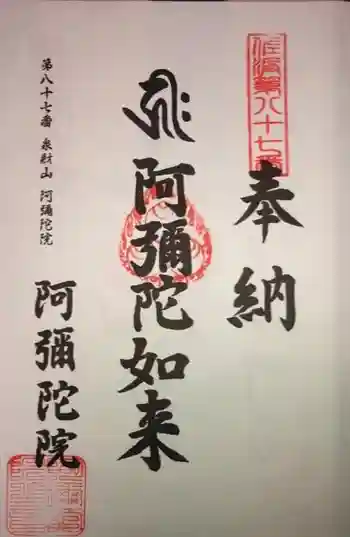 佐渡第八十七番
奉納
𑖮𑖿𑖨𑖱𑖾
阿彌陀如来
第八十七番 泉財山 阿彌陀院
阿彌陀院